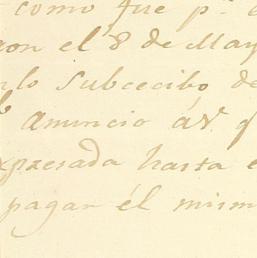 como fue p.ª
ron el 8 de May
lo subcecibo de
Anuncio á V. q
xpresada hasta e
pagar él mism